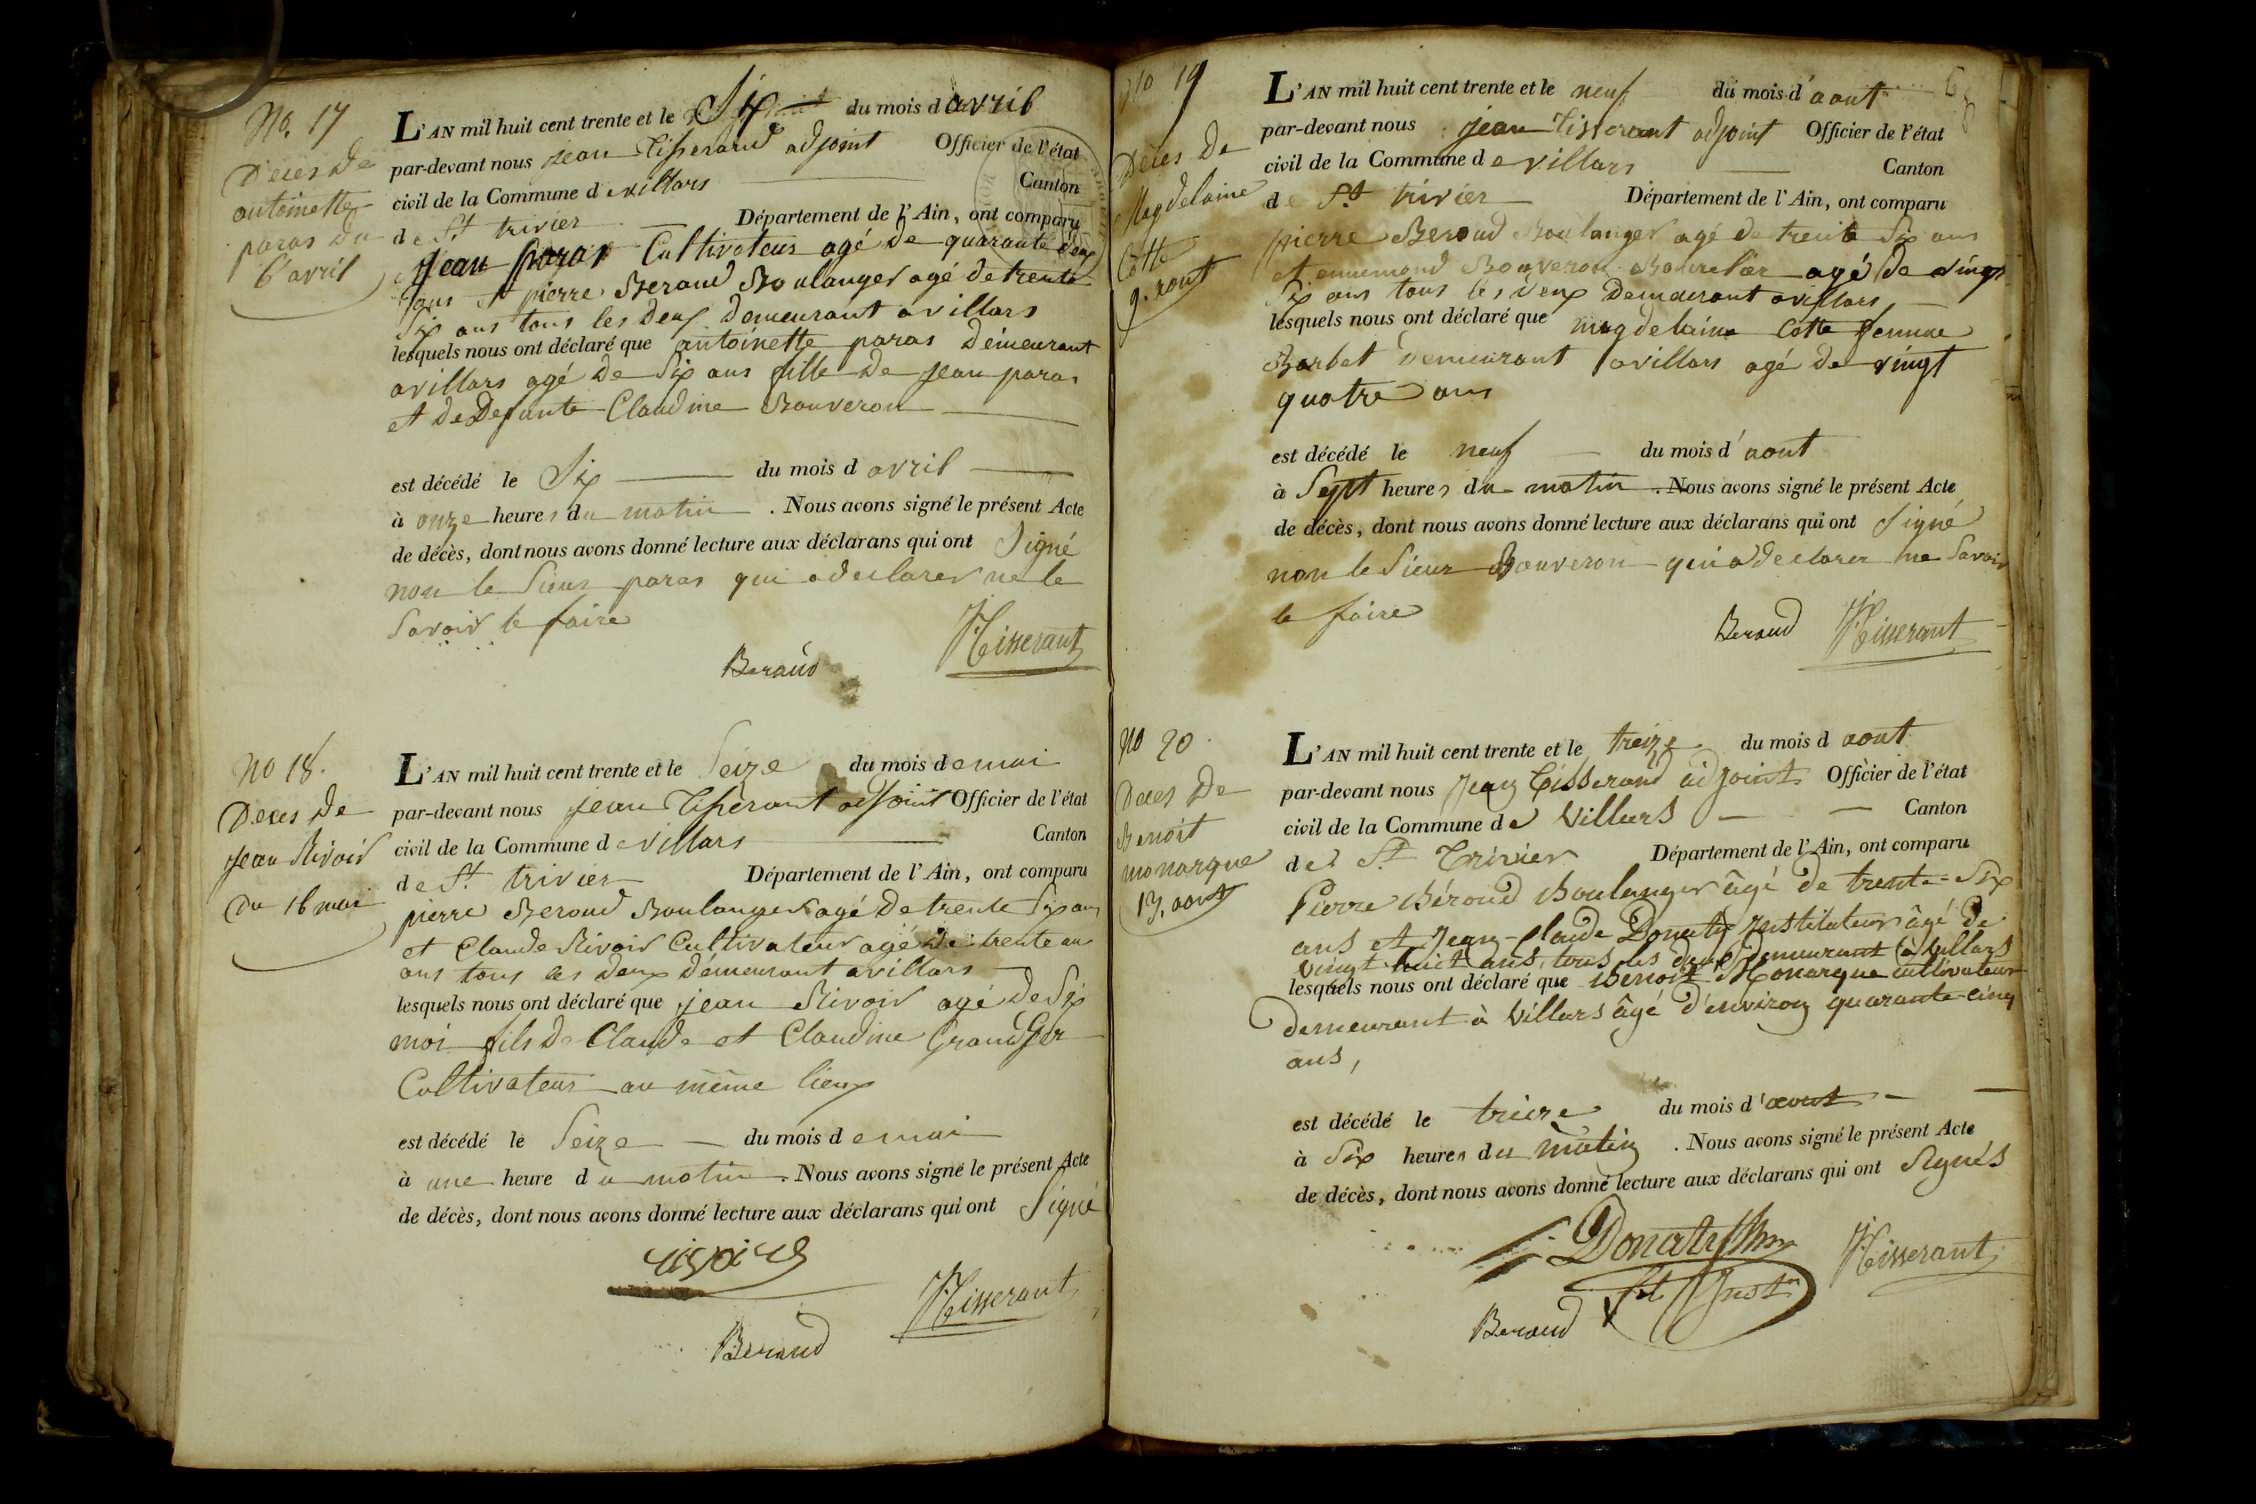 No. 17
Deces de
antoinette
paras du
6 avril
L'AN mil huit cent trente et le Six du mois d avril
par-devant nous jean Tisserand adjoint Officier de l'état
civil de la Commune de villars Canton
de St trivier Département de l'Ain, ont comparu
Jean paras Cultivateur agé de quarante deux
ans et pierre Beraud Boulanger agé de trente
Six ans tous les deux demeurant a villars
lesquels nous ont déclaré que antoinette paras demeurant
a villars agé de Six ans fille de jean paras
et de Defunte Claudine Bouveron
est décédé le Six du mois d avril
à onze heures du matin. Nous avons signé le présent Acte
de décès, dont nous avons donné lecture aux déclarans qui ont Signé
non le Sieur paras qui a declarer ne le
Savoir le faire
Beraud JTisserant
No 18.
Deces de
Jean Rivoir
Du 16 mai
L'AN mil huit cent trente et le Seize du mois de mai
par-devant nous jean Tisserant adjoint Officier de l'état
civil de la Commune de villars Canton
de St. trivier Département de l'Ain, ont comparu
pierre Beroud Boulanger agé de trente Six ans
et Claude Rivoir Cultivateur agé de trente
ans tous les deux démeurant a villars
lesquels nous ont déclaré que jean Rivoir agé de Six
moi fils de Claude et Claudine
Cultivateur au même lieux
est décédé le Seize du mois de mai
à une heure du matin. Nous avons signé le présent Acte
de décès, dont nous avons donné lecture aux déclarans qui ont Signé
rivoire
Beraud JTisserant
No 19
Deces de
Magdelaine
Cotte
9. aout
L'AN mil huit cent trente et le neuf du mois d'aout
par-devant nous jean Tisserant adjoint Officier de l'état
civil de la Commune de villars Canton
de St trivier Département de l'Ain, ont comparu
pierre Beroud Boulanger agé de trente Six ans
et ennemond Bouveron Bourelier agé de vingt
Six ans tous les deux Demeurant a villars
lesquels nous ont déclaré que magdelaine Cotte femme
Barbet demeurant a villars agé de vingt
quatre ans
est décédé le neuf du mois d'aout
à Sept heures du matin. Nous avons signé le présent Acte
de décès, dont nous avons donné lecture aux déclarans qui ont Signé
non le Sieur Bouveron qui a declarer ne Savoir
le faire
Beraud JTisserant
No 20.
Deces De
Benoit
monarque
13. aout
L'AN mil huit cent trente et le treize du mois d aout
par-devant nous Jean Tisserand adjoint Officier de l'état
civil de la Commune de Villars Canton
de St Trivier Département de l'Ain, ont comparu
Pierre Béroud Boulanger âgé de trente-Six
ans et Jean-Claude Donatis Instituteur âgé de
vingt huit ans, tous les deux demeurant à Villars
lesquels nous ont déclaré que Benoit Monarque cultivateur
demeurant à Villars âgé d'environ quarante-cinq
ans,
est décédé le treize du mois d'aout
à Six heures du matin. Nous avons signé le présent Acte
de décès, dont nous avons donné lecture aux déclarans qui ont Signés
JTisserant
Beraud